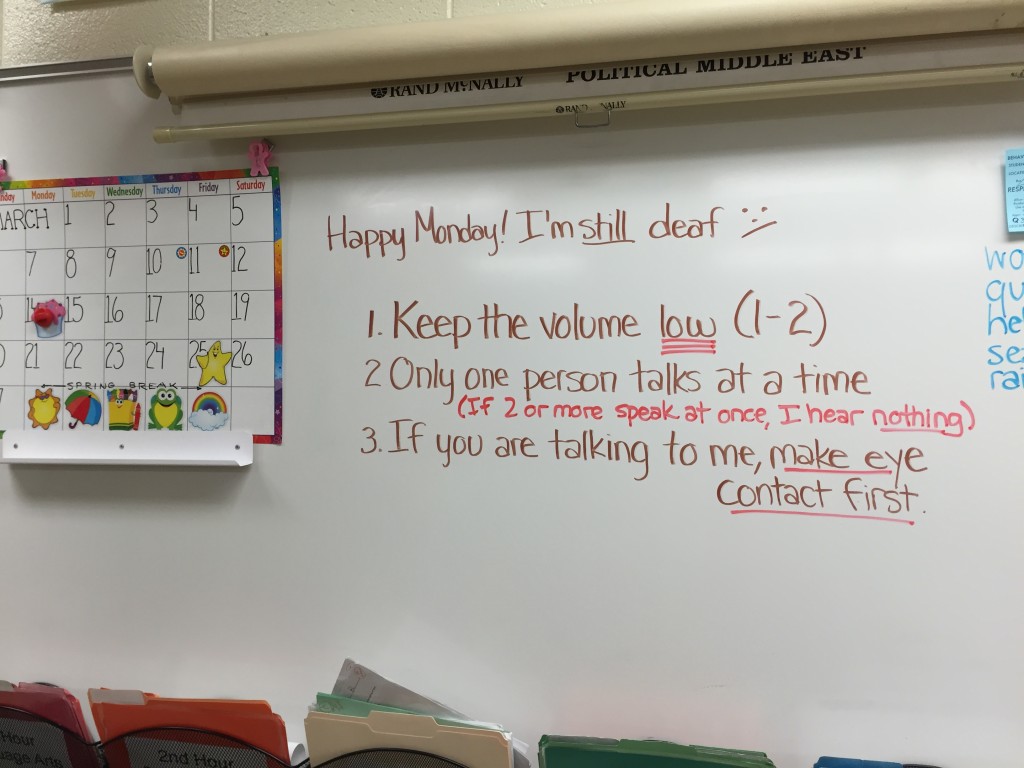 RAND McNALLY
POLITICAL MIDDLE EAST
RAND McNALLY
Monday Tuesday Wednesday Thursday Friday Saturday
MARCH 1 2 3 4 5
7 8 9 10 11 12
14 15 16 17 18 19
21 22 23 24 25 26
SPRING BREAK
Happy Monday! I'm still deaf
1. Keep the volume low (1-2)
2 Only one person talks at a time
(If 2 or more speak at once, I hear nothing)
3. If you are talking to me, make eye
contact first.
Hour
2nd Hour